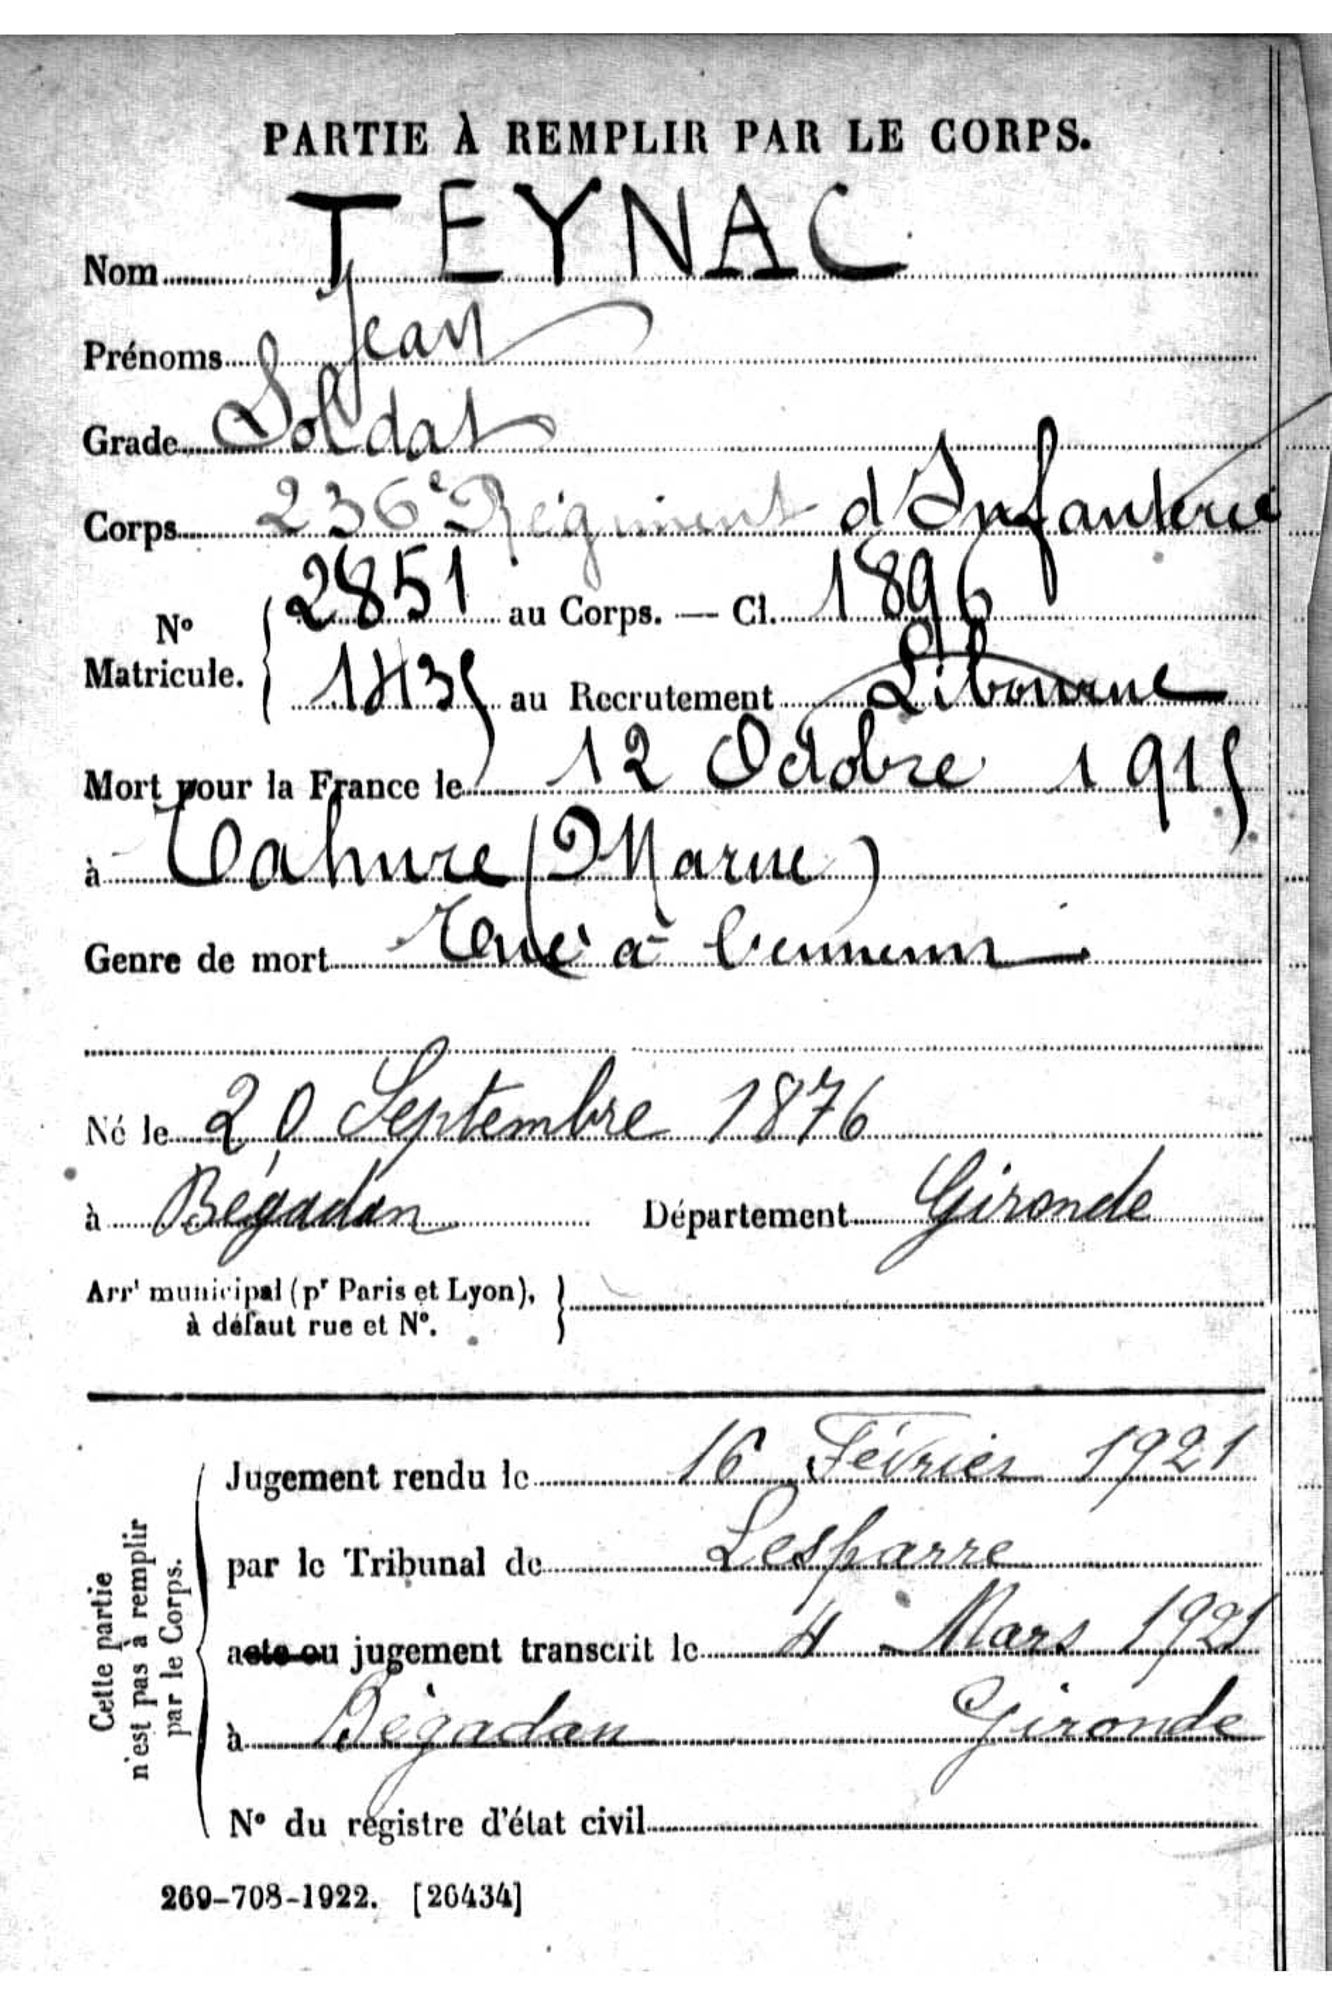 PARTIE À REMPLIR PAR LE CORPS.
Nom TEYNAC
Prénoms Jean
Grade Soldat
Corps 236e Régiment d'Infanterie
No Matricule. 2851 au Corps. — Cl. 1896
1435 au Recrutement Libourne
Mort pour la France le 12 Octobre 1915
à Tahure (Marne)
Genre de mort Tué à l'ennemi
Né le 20 Septembre 1876
à Bégadan Département Gironde
Arrt municipal (pr Paris et Lyon),
à défaut rue et No.
Cette partie
n'est pas à remplir
par le Corps.
Jugement rendu le 16 Février 1921
par le Tribunal de Lesparre
acte ou jugement transcrit le 4 Mars 1921
à Bégadan Gironde
No du registre d'état civil
269-708-1922. [26434]